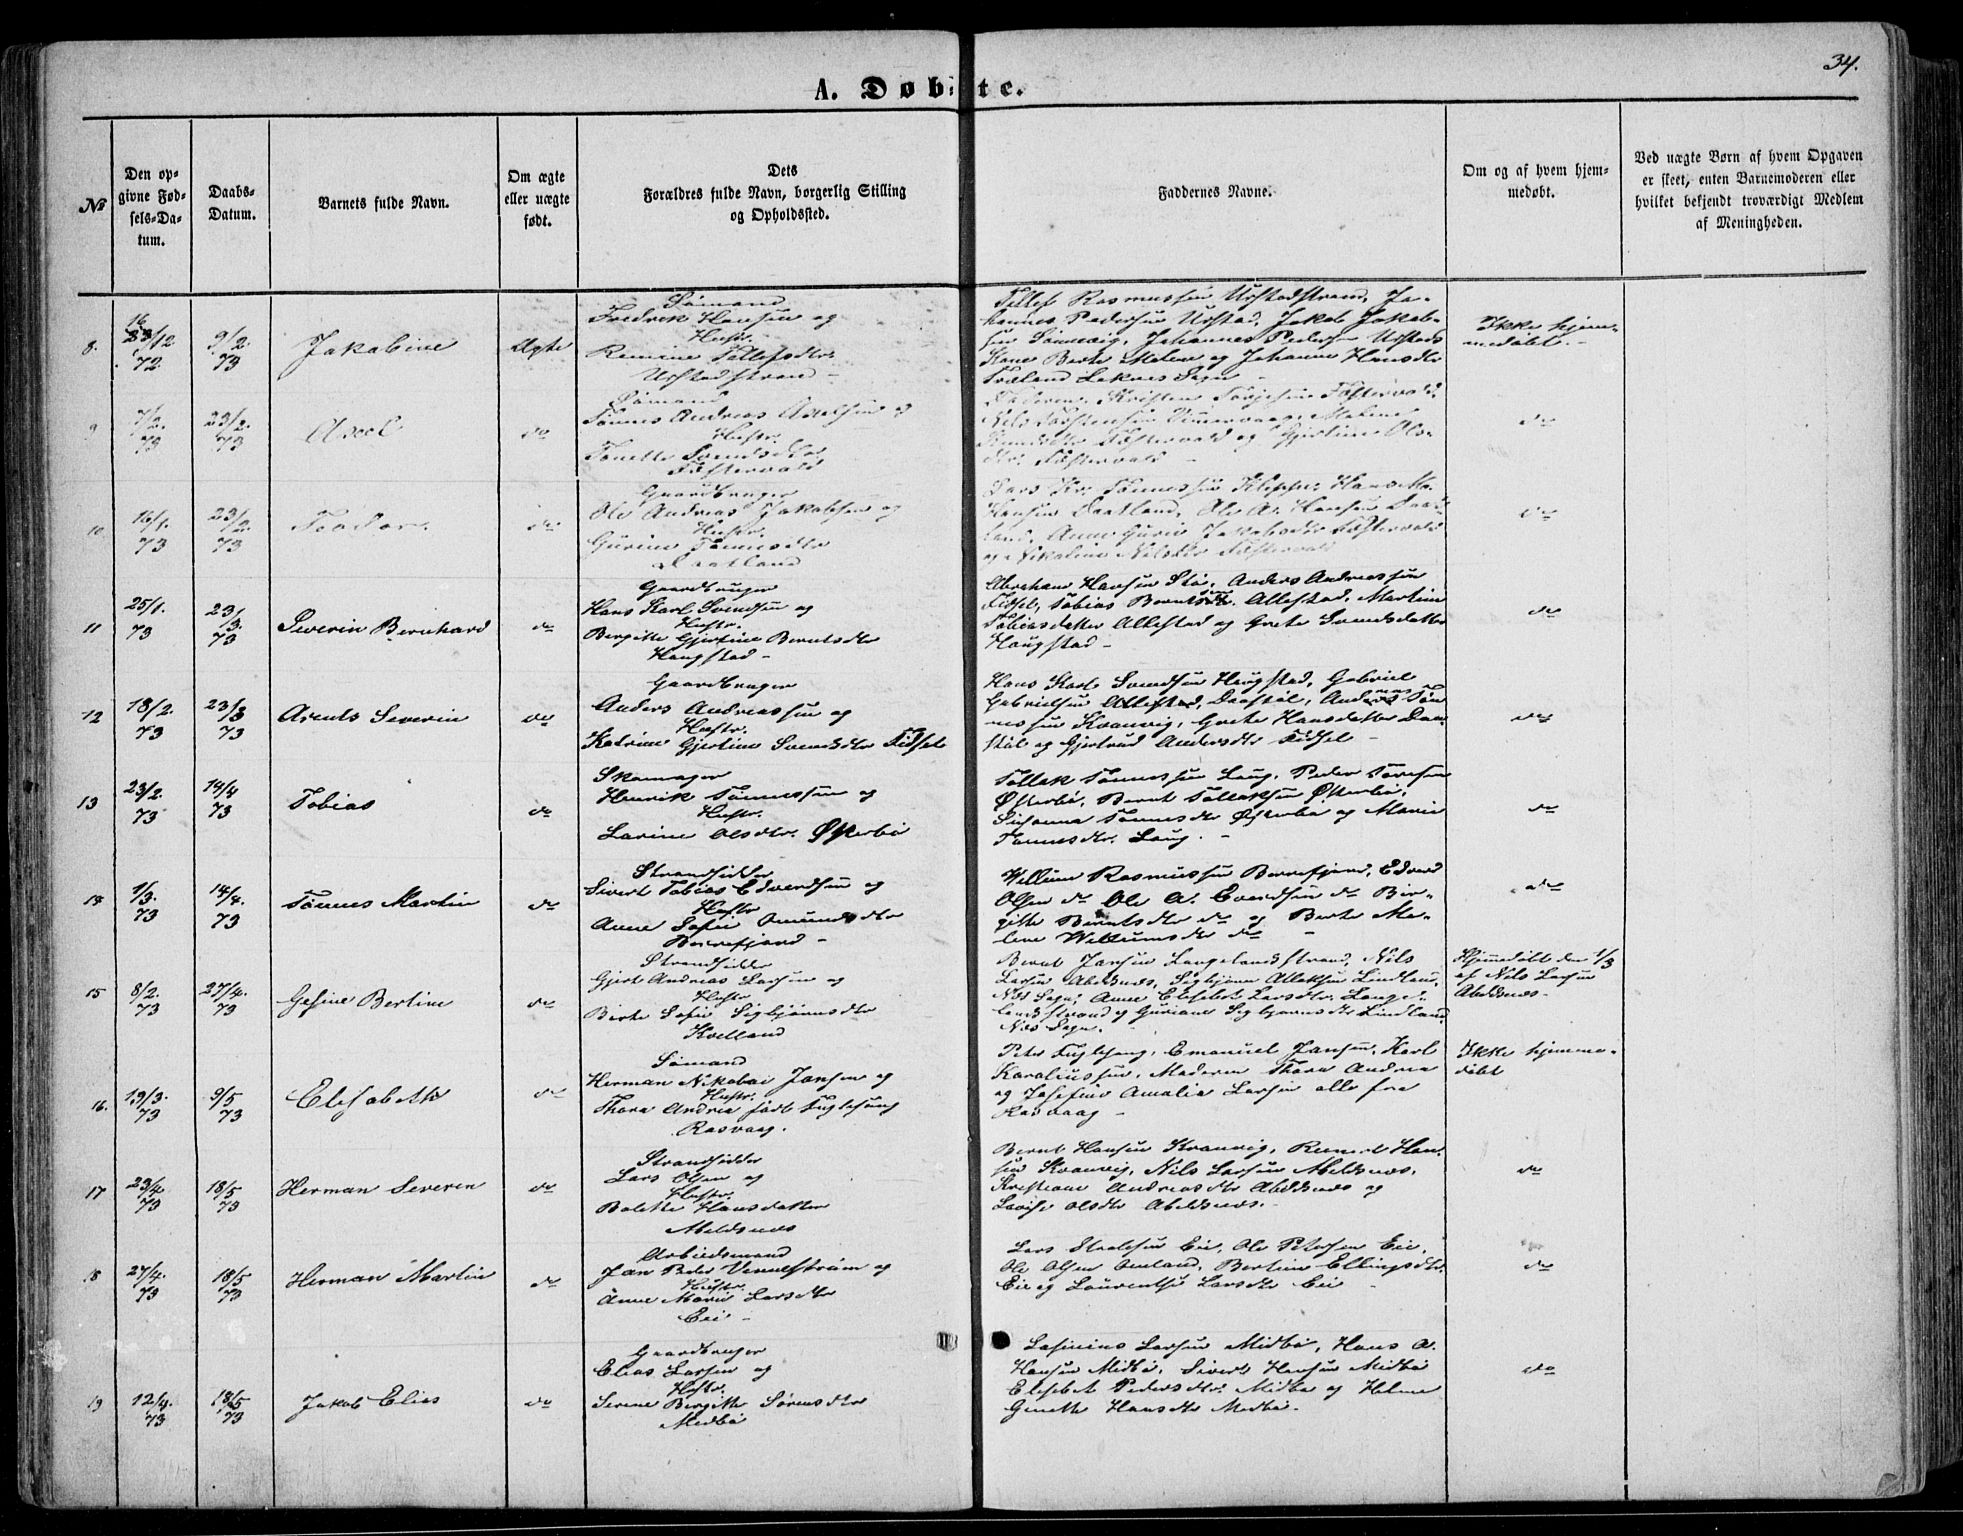 34.
A. Døbte.
№
Den op-
givne Fød-
sels-Da-
tum.
Daabs-
Datum.
Barnets fulde Navn.
Om ægte
eller uægte
født.
Dets
Forældres fulde Navn, borgerlig Stilling
og Opholdssted.
Faddernes Navne.
Om og af hvem hjem-
medøbt.
Ved uægte Børn af hvem Opgaven
er skeet, enten Barnemoderen eller
hvilket bekjendt troværdigt Medlem
af Meningheden.
8.
16
/12
72.
9/2.
73
Jakobine
Ægte
Sømand
Fredrik Hansen og
Hustr.
Remine Tollefsdtr.
Urstadstrand -
Tollef Rasmussen Urstadstrand, Jo-
hannes Pedersen Urstad, Jakob Jakob-
sen, Johannes Pedersen Urstads
Kone Berte Malene og Johanne Hansdtr
Sogn -
Ikke hjem-
medøbt. -
9
7/2.
73
23/2.
73
Axel
do
Sømand
Tønnes Andreas Axelsen og
Hustr.
Tonette Svendsdtr
Fæstervold
Faderen, Kristen Fæstervold,
Nils Torstensen, Malene
Fæstervold og Gjertine Ols-
dtr. Fæstervold -
do
10
16/1.
73
23/2.
73
Teodor.
do
Gaardbruger
Ole Andreas Jakobsen og
Hustr.
Gurine Tønnesdtr
Daatland
Lars Kr. Tønnessen, Hans M.
Hansen Daatland, Ole A. Hansen Daat-
land, Anne Gurie Jakobsdtr Fæstervold
og Nikoline Nilsdtr Fæstervold
do
11
25/1.
73
23/3.
73
Severin Bernhard
do
Gaardbruger
Hans Karl Svendsen og
Hustr.
Bergitte Gjertine Berntsdtr
Haugstad -
Abraham Hansen Stø, Anders Andreassen
Fidsel, Tobias Berntsen Allestad, Martine
Tobiasdatter Allestad og Grete Svendsdatter
Haugstad -
do
12
18/2.
73
23/3
73
Arents Severin
do
Gaardbruger
Anders Andreassen og
Hustr.
Katrine Gjertine Svendsdtr Fidsel
Hans Karl Svendsen Haugstad, Gabriel
Gabrielsen Daastøl, Andreas Tøn-
nessen Kvanvig, Grete Hansdatter Daa-
støl og Gjertrud Andersdtr Fidsel -
do
13
23/2.
73
14/4
73
Tobias
do
Skomager
Henrik Tønnessen og
Hustr.
Larine Olsdtr. Østerbø
Tollak Tønnessen Laug, Peder Toresen
Østerbø, Bernt Tollaksen Østerbø,
Susanna Tønnesdtr Østerbø og Marie
Tønnesdtr. Laug. -
do
14
1/3.
73
14/4.
73
Tønnes Martin
do
Strandsidder
Sivert Tobias Edvardsen og
Hustr
Anne Sofie Omundsdtr
Borrefjord -
Willum Rasmussen Borrefjord, Edvard
Olsen do Ole A. Evardsen do Bir-
gitte Berntsdtr do og Berte Ma-
lene Willumsdtr do -
do
15
8/2.
73
27/4.
73
Gesine Bertine
do
Strandsidder
Gjert Andreas Larsen og
Hustr
Birte Sofie Sigbjørnsdtr
Kvelland
Bernt Jansen Langelandsstrand, Nils
Larsen Abelsnæs, Sigbjørn Atlaksen Lindland,
Næs Sogn, Anne Elisebet Larsdtr. Lange-
landsstrand og Guriane Sigbjørnsdtr Lindland
Næs Sogn. -
Hjemmedøbt den 1/3
af Nils Larsen
Abelsnæs -
16.
19/3.
73
9/5
73
Elisabeth
do
Sømand
Herman Nikolai Jansen og
Hustr.
Thora Andrea født Fuglesang
Rasvaag.
Peter Fuglesang, Emanuel Jansen, Karl
Karoliussen, Moderen Thora Andrea
og Josefine Amalia Larsen alle fra
Rasvaag -
Ikke hjemme-
døbt
17
23/4.
73
18/5
73
Herman Severin
do
Strandsidder
Lars Olsen og
Hustr.
Bolette Hansdatter
Abelsnæs
Bernt Hansen Kvanvig, Reinert Han-
sen Kvanvig, Nils Larsen Abelsnæs,
Kristiane Andreasdtr Abelsnæs og
Lovise Olsdtr Abelsnæs. -
do
18
27/4.
73
18/5
73
Herman Martin
do
Arbeidsmand
Jan Peder Vennestrøm og
Hustr.
Anne Marie Larsdtr
Eie -
Lars Eie, Ole Petersen Eie,
Ole Olsen Omland, Bertine Ellingsdtr.
Eie og Laurentse Larsdtr Eie
do
19
12/4.
73
18/5
73
Jakob Elias
do
Gaardbruger
Elias Larsen og
Hustr.
Serine Bergitte Sørensdtr
Midbø
Larsen Midbø, Hans A.
Hansen Midbø, Sivert Hansen Midbø
Elisebet Pedersdtr. Midbø og Helene
Hansdtr Midbø.
do